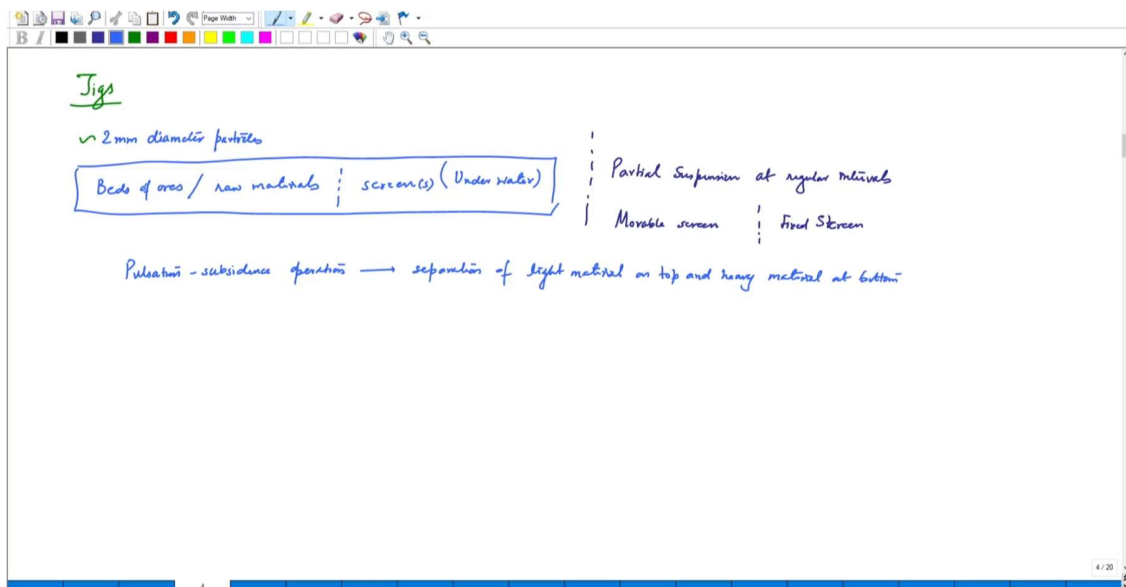 Page Width
B I
Jigs
~ 2mm diameter particles
Beds of ores / raw materials screen(s) (Under water)
Partial Suspension at regular intervals
Movable screen Fixed Screen
Pulsation - subsidence operation → separation of light material on top and heavy material at bottom
4 / 20